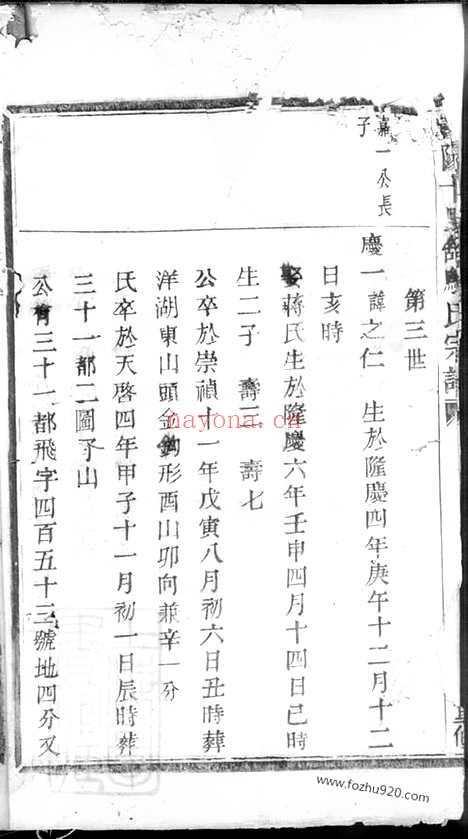 第三世
嘉一公長
子
慶一諱之仁 生於隆慶四年庚午十二月十二
日亥時
娶蔣氏生於隆慶六年壬申四月十四日巳時
生二子 壽三 壽七
公卒於崇禎十一年戊寅八月初六日丑時葬
洋湖東山頭金鉤形酉山卯向兼辛一分
氏卒於天啓四年甲子十一月初一日辰時葬
三十一都二圖下山
公有三十一都飛字四百五十三號地四分又
氏宗譜
nayona.cn
www.fozhu920.com